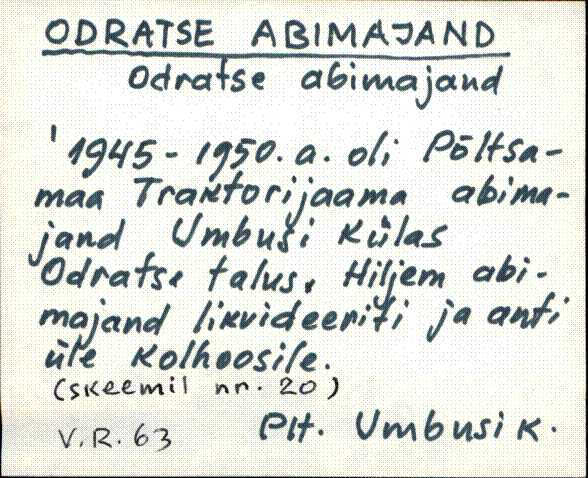 ODRATSE ABIMAJAND
Odratse abimajand
' 1945-1950. a. oli Põltsa-
maa Traktorijaama abima-
jand Umbusi Külas
Odratse talus. Hiljem abi-
majand likvideeriti ja anti
üle kolhoosile.
(skeemil nr. 20)
V.R. 63 Plt. Umbusi k.